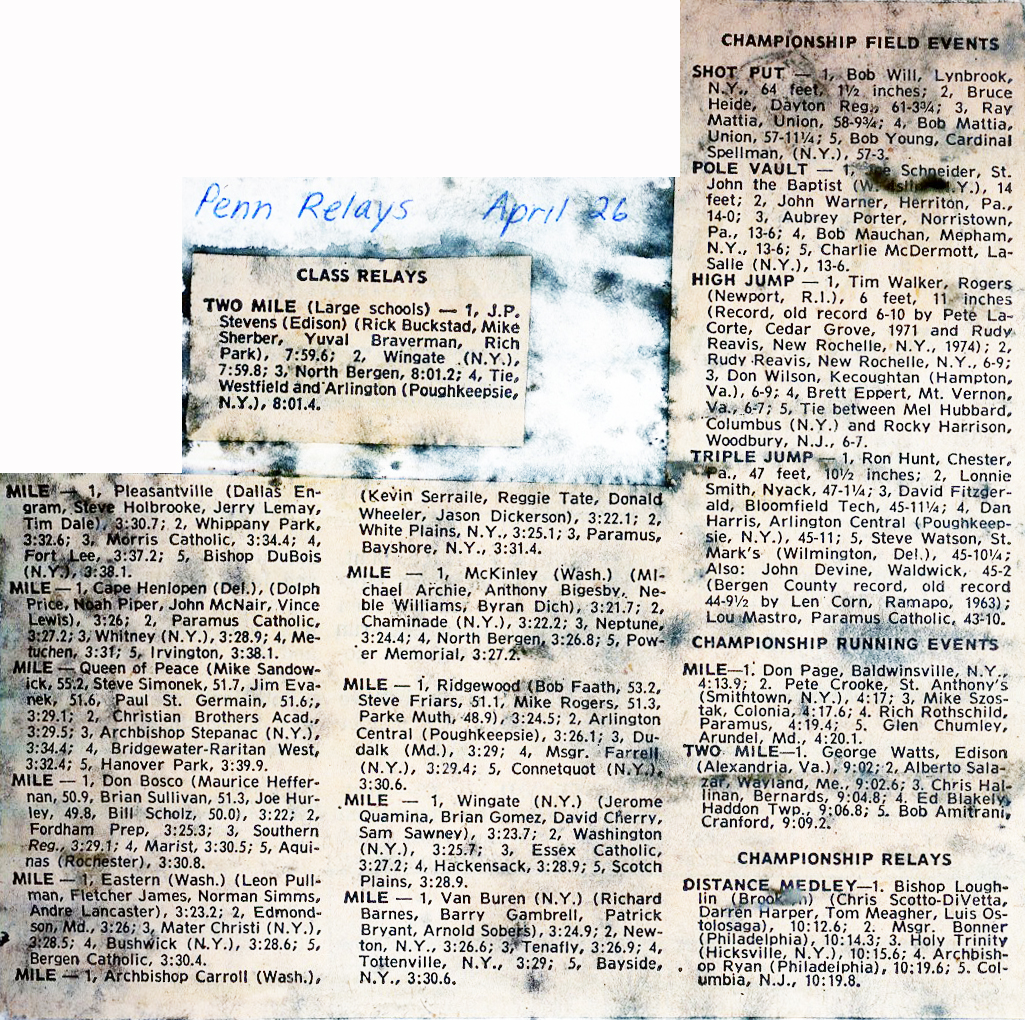 Penn Relays April 26
CLASS RELAYS
TWO MILE (Large schools) — 1, J.P.
Stevens (Edison) (Rick Buckstad, Mike
Sherber, Yuval Braverman, Rich
Park), 7:59.6; 2, Wingate (N.Y.),
7:59.8; 3, North Bergen, 8:01.2; 4, Tie,
Westfield and Arlington (Poughkeepsie,
N.Y.), 8:01.4.
MILE — 1, Pleasantville (Dallas En-
gram, Steve Holbrooke, Jerry Lemay,
Tim Dale), 3:30.7; 2, Whippany Park,
3:32.6; 3, Morris Catholic, 3:34.4; 4,
Fort Lee, 3:37.2; 5, Bishop DuBois
(N.Y.), 3:38.1.
MILE — 1, Cape Henlopen (Del.), (Dolph
Price, Noah Piper, John McNair, Vince
Lewis), 3:26; 2, Paramus Catholic,
3:27.2; 3, Whitney (N.Y.), 3:28.9; 4, Me-
tuchen, 3:31; 5, Irvington, 3:38.1.
MILE — Queen of Peace (Mike Sandow-
ick, 55.2, Steve Simonek, 51.7, Jim Eva-
nek, 51.6, Paul St. Germain, 51.6;,
3:29.1; 2, Christian Brothers Acad.,
3:29.5; 3, Archbishop Stepanac (N.Y.),
3:34.4; 4, Bridgewater-Raritan West,
3:32.4; 5, Hanover Park, 3:39.9.
MILE — 1, Don Bosco (Maurice Heffer-
nan, 50.9, Brian Sullivan, 51.3, Joe Hur-
ley, 49.8, Bill Scholz, 50.0), 3:22; 2,
Fordham Prep, 3:25.3; 3, Southern
Reg., 3:29.1; 4, Marist, 3:30.5; 5, Aqui-
nas (Rochester), 3:30.8.
MILE — 1, Eastern (Wash.) (Leon Pull-
man, Fletcher James, Norman Simms,
Andre Lancaster), 3:23.2; 2, Edmond-
son, Md., 3:26; 3, Mater Christi (N.Y.),
3:28.5; 4, Bushwick (N.Y.), 3:28.6; 5,
Bergen Catholic, 3:30.4.
MILE — 1, Archbishop Carroll (Wash.),
(Kevin Serraile, Reggie Tate, Donald
Wheeler, Jason Dickerson), 3:22.1; 2,
White Plains, N.Y., 3:25.1; 3, Paramus,
Bayshore, N.Y., 3:31.4.
MILE — 1, McKinley (Wash.) (Mi-
chael Archie, Anthony Bigesby, Ne-
ble Williams, Byran Dich), 3:21.7; 2,
Chaminade (N.Y.), 3:22.2; 3, Neptune,
3:24.4; 4, North Bergen, 3:26.8; 5, Pow-
er Memorial, 3:27.2.
MILE — 1, Ridgewood (Bob Faath, 53.2,
Steve Friars, 51.1, Mike Rogers, 51.3,
Parke Muth, 48.9), 3:24.5; 2, Arlington
Central (Poughkeepsie), 3:26.1; 3, Du-
dalk (Md.), 3:29; 4, Msgr. Farrell
(N.Y.), 3:29.4; 5, Connetquot (N.Y.),
3:30.6.
MILE — 1, Wingate (N.Y.) (Jerome
Quamina, Brian Gomez, David Cherry,
Sam Sawney), 3:23.7; 2, Washington
(N.Y.), 3:25.7; 3, Essex Catholic,
3:27.2; 4, Hackensack, 3:28.9; 5, Scotch
Plains, 3:28.9.
MILE — 1, Van Buren (N.Y.) (Richard
Barnes, Barry Gambrell, Patrick
Bryant, Arnold Sobers), 3:24.9; 2, New-
ton, N.Y., 3:26.6; 3, Tenafly, 3:26.9; 4,
Tottenville, N.Y., 3:29; 5, Bayside,
N.Y., 3:30.6.
CHAMPIONSHIP FIELD EVENTS
SHOT PUT — 1, Bob Will, Lynbrook,
N.Y., 64 feet, 1½ inches; 2, Bruce
Heide, Dayton Reg., 61-3¾; 3, Ray
Mattia, Union, 58-9¾; 4, Bob Mattia,
Union, 57-11¼; 5, Bob Young, Cardinal
Spellman, (N.Y.), 57-3.
POLE VAULT — 1, Schneider, St.
John the Baptist (W. N.Y.), 14
feet; 2, John Warner, Herriton, Pa.,
14-0; 3, Aubrey Porter, Norristown,
Pa., 13-6; 4, Bob Mauchan, Mepham,
N.Y., 13-6; 5, Charlie McDermott, La-
Salle (N.Y.), 13-6.
HIGH JUMP — 1, Tim Walker, Rogers
(Newport, R.I.), 6 feet, 11 inches
(Record, old record 6-10 by Pete La-
Corte, Cedar Grove, 1971 and Rudy
Reavis, New Rochelle, N.Y., 1974); 2,
Rudy Reavis, New Rochelle, N.Y., 6-9;
3, Don Wilson, Kecoughtan (Hampton,
Va.), 6-9; 4, Brett Eppert, Mt. Vernon,
Va., 6-7; 5, Tie between Mel Hubbard,
Columbus (N.Y.) and Rocky Harrison,
Woodbury, N.J., 6-7.
TRIPLE JUMP — 1, Ron Hunt, Chester,
Pa., 47 feet, 10½ inches; 2, Lonnie
Smith, Nyack, 47-1¼; 3, David Fitzger-
ald, Bloomfield Tech, 45-11¼; 4, Dan
Harris, Arlington Central (Poughkeep-
sie, N.Y.), 45-11; 5, Steve Watson, St.
Mark's (Wilmington, Del.), 45-10¼;
Also: John Devine, Waldwick, 45-2
(Bergen County record, old record
44-9½ by Len Corn, Ramapo, 1963);
Lou Mastro, Paramus Catholic, 43-10.
CHAMPIONSHIP RUNNING EVENTS
MILE—1. Don Page, Baldwinsville, N.Y.,
4:13.9; 2. Pete Crooke, St. Anthony's
(Smithtown, N.Y.), 4:17; 3, Mike Szos-
tak, Colonia, 4:17.6; 4. Rich Rothschild,
Paramus, 4:19.4; 5. Glen Chumley,
Arundel, Md., 4:20.1.
TWO MILE—1. George Watts, Edison
(Alexandria, Va.), 9:02; 2, Alberto Sala-
zar, Wayland, Me., 9:02.6; 3. Chris Hal-
linan, Bernards, 9:04.8; 4. Ed Blakely,
Haddon Twp., 9:06.8; 5. Bob Amitrani,
Cranford, 9:09.2.
CHAMPIONSHIP RELAYS
DISTANCE MEDLEY—1. Bishop Lough-
lin (Chris Scotto-DiVetta,
Darren Harper, Tom Meagher, Luis Os-
tolosaga), 10:12.6; 2. Msgr. Bonner
(Philadelphia), 10:14.3; 3. Holy Trinity
(Hicksville, N.Y.), 10:15.6; 4. Archbish-
op Ryan (Philadelphia), 10:19.6; 5. Col-
umbia, N.J., 10:19.8.